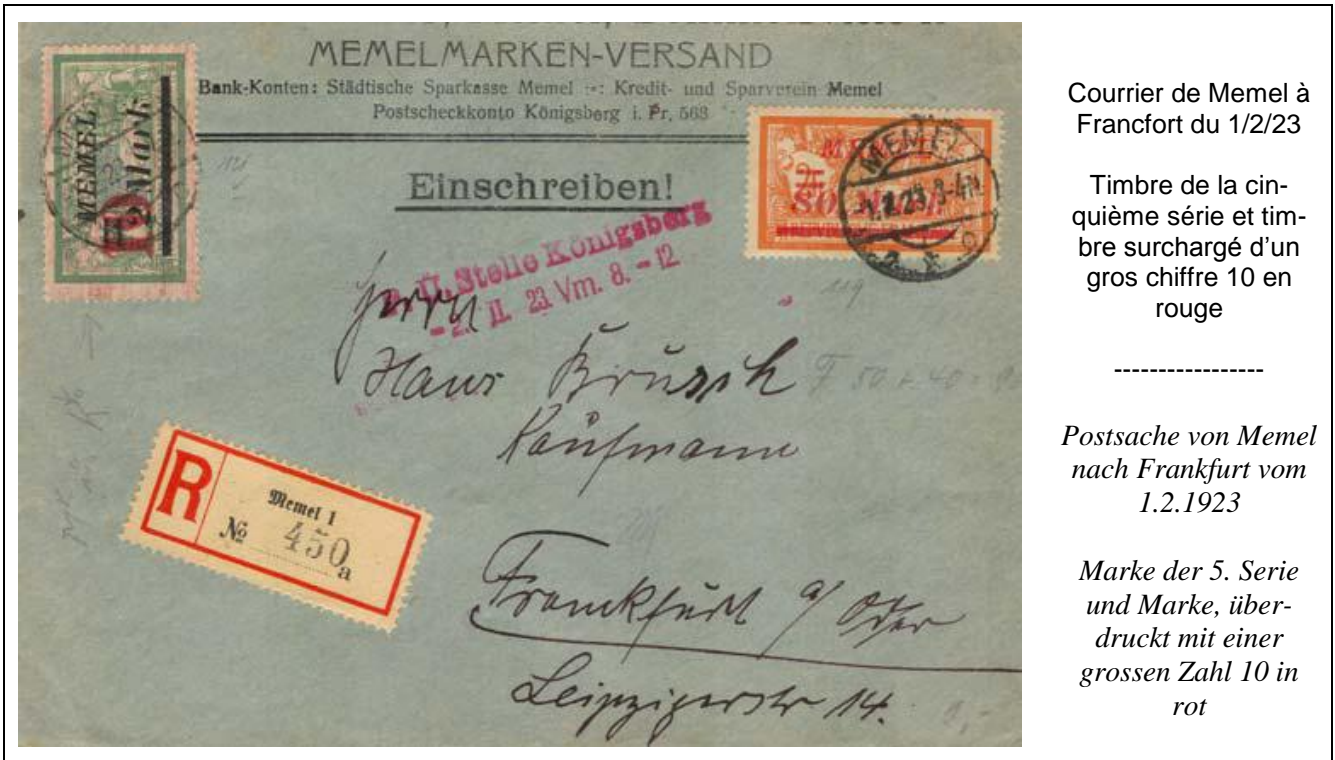 MEMELMARKEN-VERSAND
Bank-Konten: Städtische Sparkasse Memel -:- Kredit- und Sparverein Memel
Postscheckkonto Königsberg i. Pr. 568
MEMEL
10
2 Mark
Einschreiben!
MEMEL
MEMEL
1.2.23.3-4N
Stelle Königsberg
-2. II. 23 Vm. 8.-12
Herrn
Hans
Kaufmann
R
Memel 1
№ 450
a
Frankfurt a/ Oder
Leipzigerstr 14.
Courrier de Memel à
Francfort du 1/2/23
Timbre de la cin-
quième série et tim-
bre surchargé d'un
gros chiffre 10 en
rouge
-----------------
Postsache von Memel
nach Frankfurt vom
1.2.1923
Marke der 5. Serie
und Marke, über-
druckt mit einer
grossen Zahl 10 in
rot